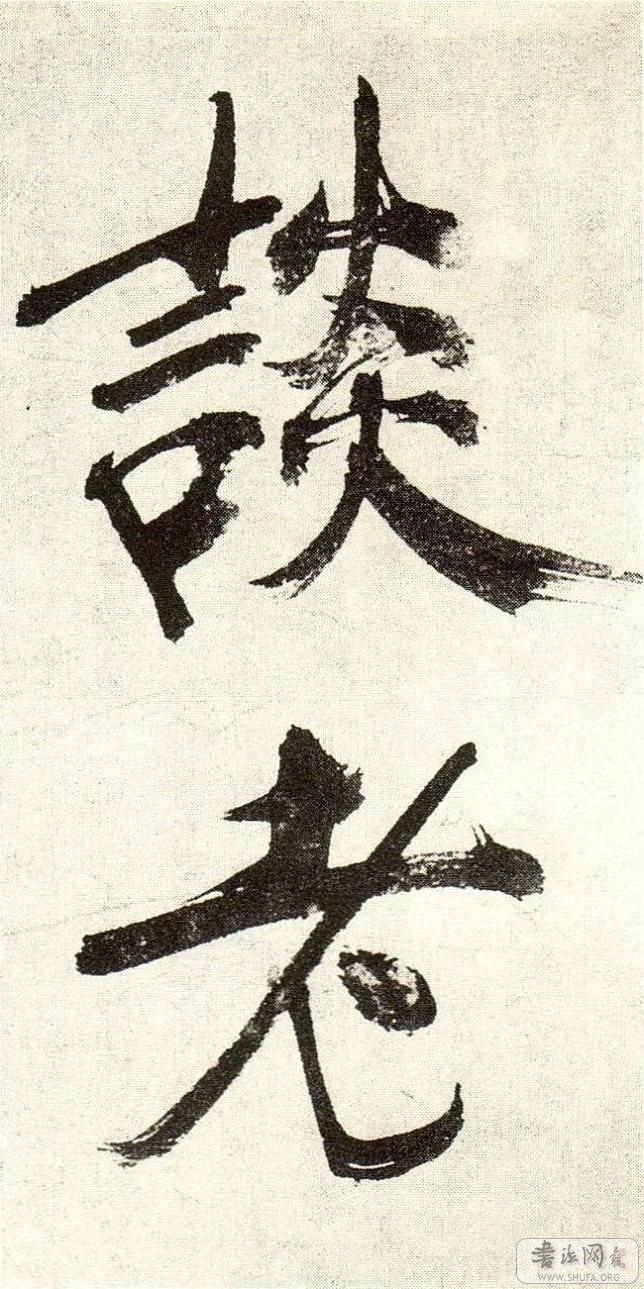 談老
书法网
WWW.SHUFA.ORG